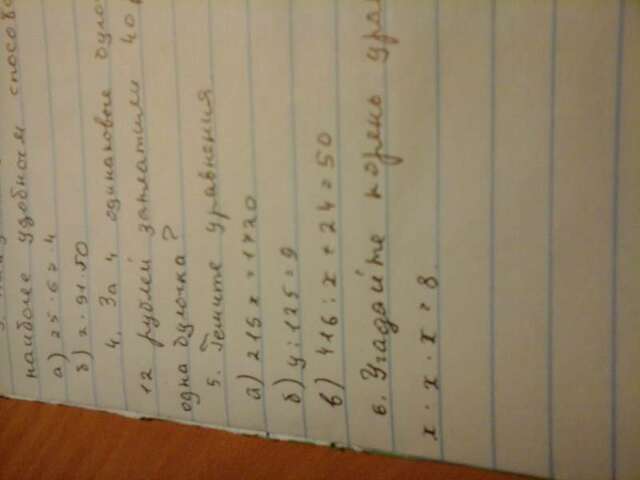 наиболее удобным способ
а) 25 · 67 · 4
б) 2 · 91 · 50
4. За 4 одинаковые було
12 рублей заплатили 40
одна булочка?
5. Решите уравнения
а) 215x = 1720
б) y : 125 = 9
в) 416 : x + 24 = 50
6. Угадайте корень ура
x · x · x = 8